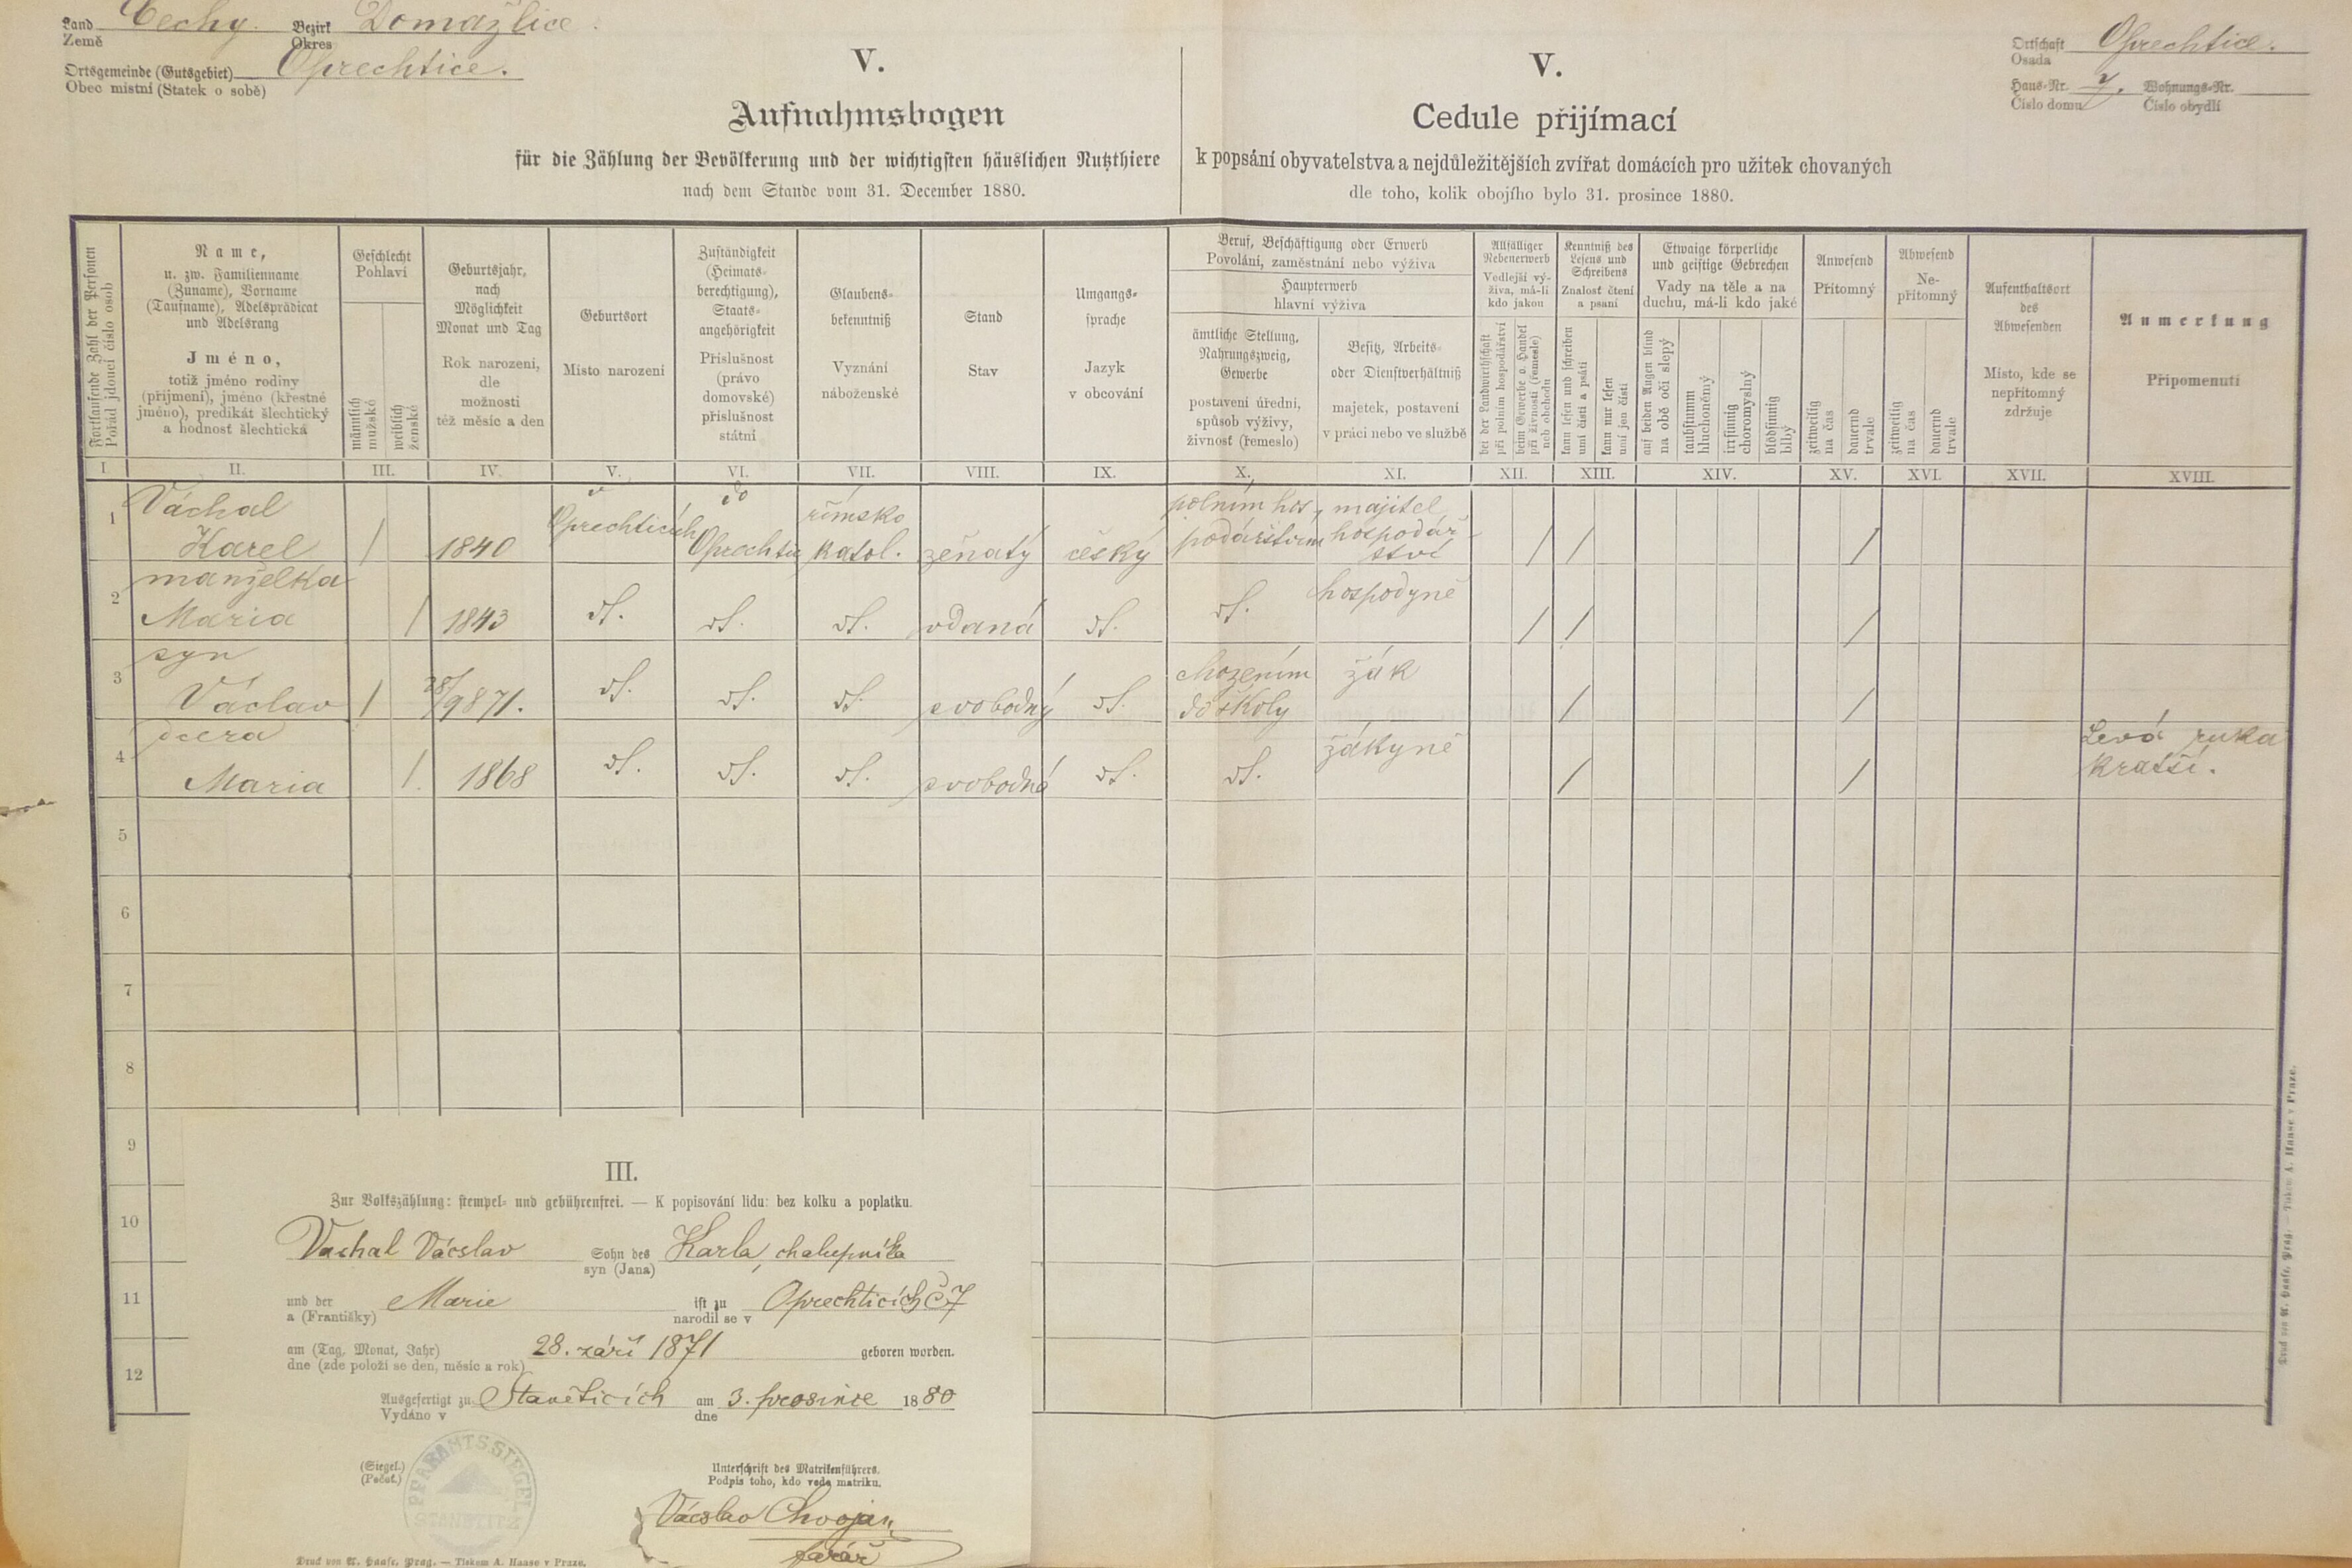 Land Země Čechy. Bezirk Okres Domažlice.
Ortsgemeinde (Gutsgebiet) Obec místní (Statek o sobě) Oprechtice.
Ortschaft Osada Oprechtice.
Haus-Nr. Číslo domu 7. Wohnungs-Nr. Číslo obydlí
V.
Aufnahmsbogen
für die Zählung der Bevölkerung und der wichtigsten häuslichen Nutzthiere
nach dem Stande vom 31. December 1880.
V.
Cedule přijímací
k popsání obyvatelstva a nejdůležitějších zvířat domácích pro užitek chovaných
dle toho, kolik obojího bylo 31. prosince 1880.
Fortlaufende Zahl der Personen
Pořád jdoucí číslo osob
Name,
u. zw. Familienname
(Zuname), Vorname
(Taufname), Adelsprädicat
und Adelsrang
Jméno,
totiž jméno rodiny
(příjmení), jméno (křestné
jméno), predikát šlechtický
a hodnosť šlechtická
Geschlecht
Pohlaví
männlich
mužské
weiblich
ženské
Geburtsjahr,
nach
Möglichkeit
Monat und Tag
Rok narození,
dle
možnosti
též měsíc a den
Geburtsort
Místo narození
Zuständigkeit
(Heimats-
berechtigung),
Staats-
angehörigkeit
Příslušnost
(právo
domovské)
příslušnost
státní
Glaubens-
bekenntniß
Vyznání
náboženské
Stand
Stav
Umgangs-
sprache
Jazyk
v obcování
Beruf, Beschäftigung oder Erwerb
Povolání, zaměstnání nebo výživa
Haupterwerb
hlavní výživa
ämtliche Stellung,
Nahrungszweig,
Gewerbe
postavení úřední,
spůsob výživy,
živnosť (řemeslo)
Besitz, Arbeits-
oder Dienstverhältniß
majetek, postavení
v práci nebo ve službě
Allfälliger
Nebenerwerb
Vedlejší vý-
živa, má-li
kdo jakou
bei der Landwirthschaft
při polním hospodářství
beim Gewerbe o. Handel
při živnosti (řemesle)
neb obchodu
Kenntniß des
Lesens und
Schreibens
Znalosť čtení
a psaní
kann lesen und schreiben
umí čísti a psáti
kann nur lesen
umí jen čísti
Etwaige körperliche
und geistige Gebrechen
Vady na těle a na
duchu, má-li kdo jaké
auf beiden Augen blind
na obě oči slepý
taubstumm
hluchoněmý
irrsinnig
choromyslný
blödsinnig
blbý
Anwesend
Přítomný
zeitweilig
na čas
dauernd
trvale
Abwesend
Ne-
přítomný
zeitweilig
na čas
dauernd
trvale
Aufenthaltsort
des
Abwesenden
Místo, kde se
nepřítomný
zdržuje
Anmerkung
Připomenutí
I. II. III. IV. V. VI. VII. VIII. IX. X. XI. XII. XIII. XIV. XV. XVI. XVII. XVIII.
1 Váchal
Karel / 1840 v Oprechticích do Oprechtic římsko katol. ženatý český polním hos- podářstvím majitel hospodář- ství / / /
2 manželka
Maria / 1843 dt. dt. dt. vdaná dt. dt. hospodyně / / /
3 syn
Václav / 28/9 871. dt. dt. dt. svobodný dt. chozením do školy žák / /
4 dcera
Maria /. 1868 dt. dt. dt. svobodná dt. dt. žákyně / / Levá ruka kratší.
5
6
7
8
9
10
11
12
III.
Zur Volkszählung: stempel- und gebührenfrei. — K popisování lidu: bez kolku a poplatku.
Vachal Vácslav Sohn des syn (Jana) Karla, chalupníka
und der a (Františky) Marie ist zu narodil se v Oprechticích Č 7
am (Tag, Monat, Jahr) dne (zde položí se den, měsíc a rok) 28. září 1871 geboren worden.
Ausgefertigt zu Vydáno v Staněticích am dne 3. prosince 1880
(Siegel.)
(Pečeť.)
PFARRAMTS SIEGEL
STANETITZ
Unterschrift des Matrikenführers.
Podpis toho, kdo vede matriku.
Vácslav Chvojan,
farář
Druck von A. Haase, Prag. — Tiskem A. Haase v Praze.
Druck von A. Haase, Prag. — Tiskem A. Haase v Praze.